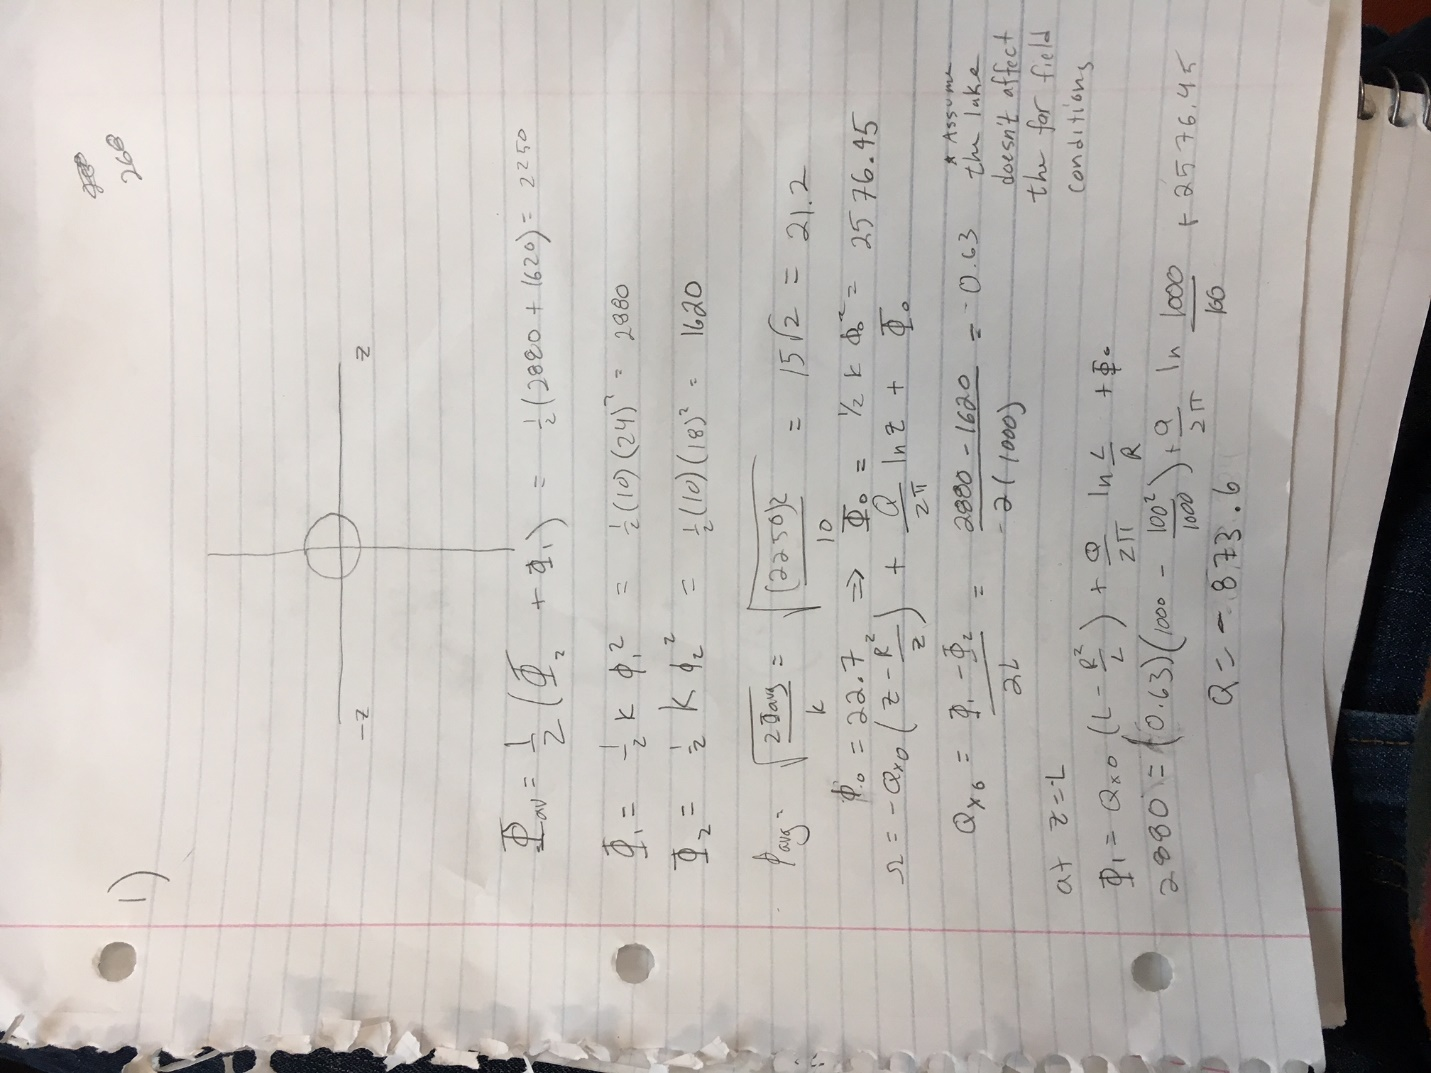 268
1)
-z z
Φ_av = 1/2 (Φ_2 + Φ_1) = 1/2 (2880 + 1620) = 2250
Φ_1 = 1/2 k ϕ_1² = 1/2 (10) (24)² = 2880
Φ_2 = 1/2 k ϕ_2² = 1/2 (10) (18)² = 1620
ϕ_avg = √(2Φ_avg / k) = √((2250)2 / 10) = 15√2 = 21.2
ϕ_0 = 22.7 => Φ_0 = 1/2 k ϕ_0² = 2576.45
Ω = -Q_x0 (z - R²/z) + Q/2π ln z + Φ_0
Q_x0 = Φ_1 - Φ_2 / 2L = 2880 - 1620 / -2(1000) = -0.63
* Assume
the lake
doesn't affect
the far field
conditions
at z=-L
Φ_1 = Q_x0 (L - R²/L) + Q/2π ln L/R + Φ_0
2880 = (0.63)(1000 - 100²/1000) + Q/2π ln 1000/100 + 2576.45
Q = -873.6